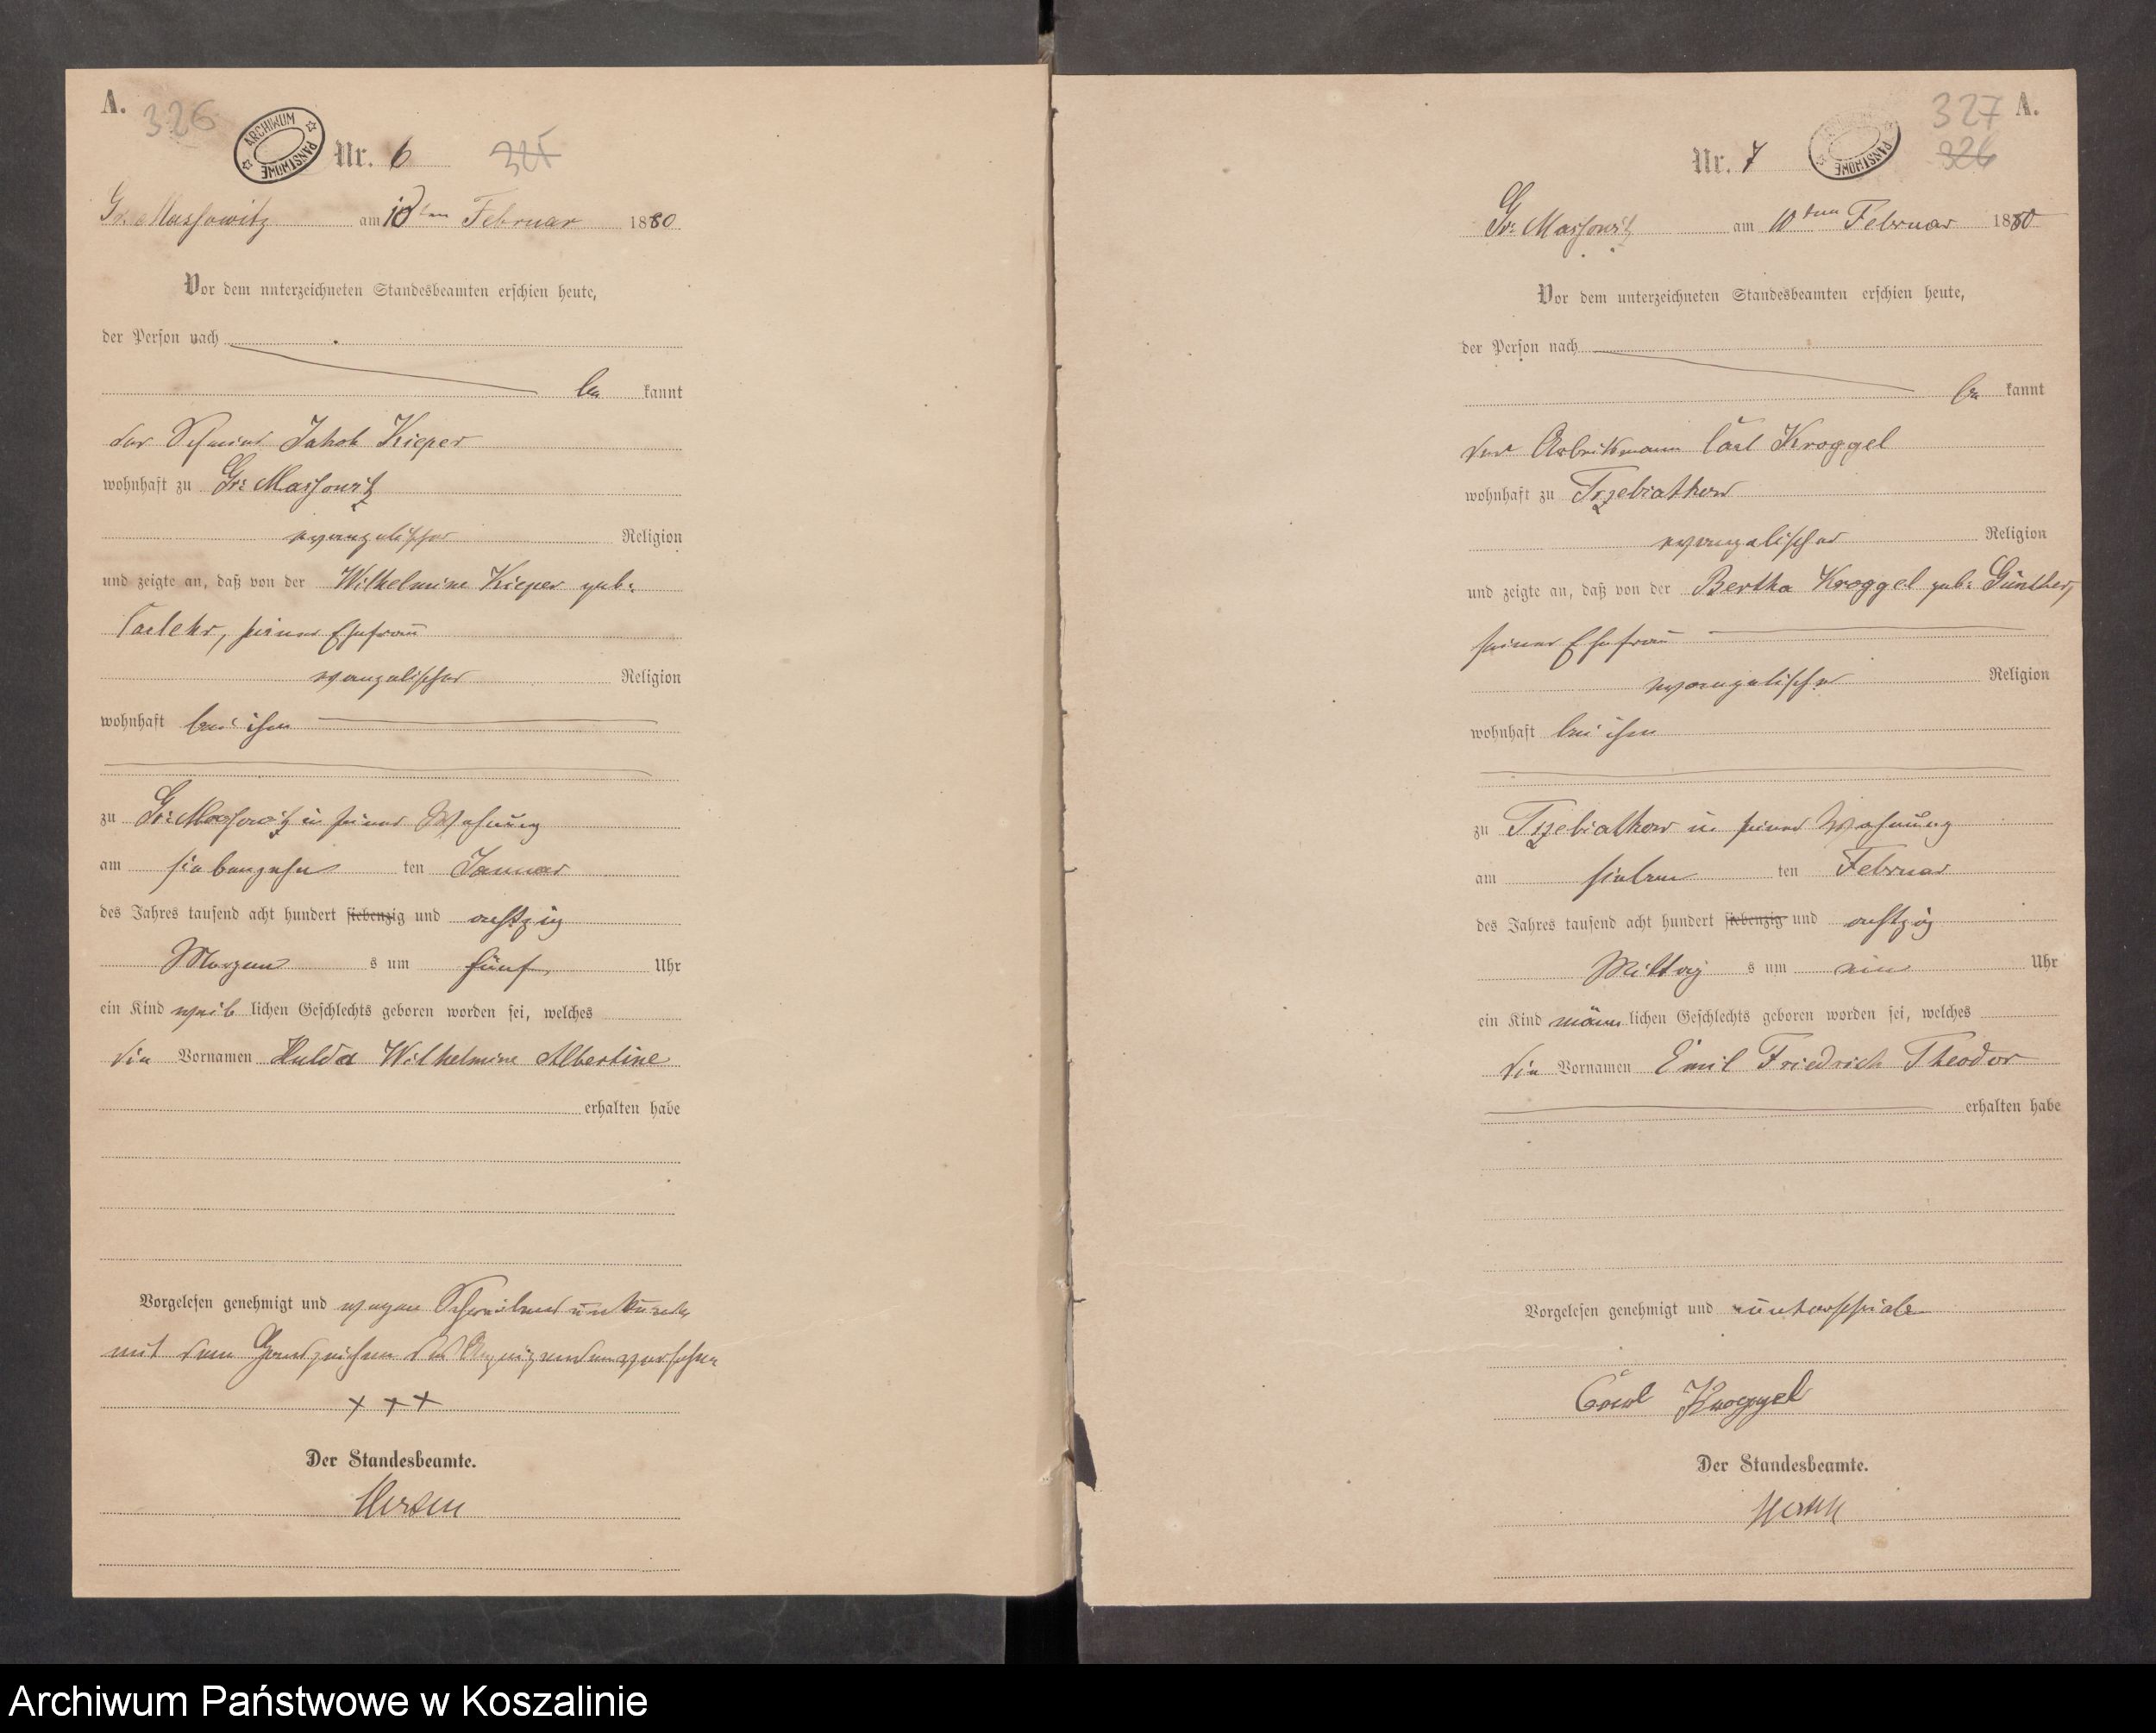 A.
326
ARCHIWUM PAŃSTWOWE
Nr. 6
325
Gr. Massowitz am 10ten Februar 1880
Vor dem unterzeichneten Standesbeamten erschien heute,
der Person nach
be kannt
der Jakob Kieper
wohnhaft zu Gr: Massowitz
evangelischer Religion
und zeigte an, daß von der Wilhelmine Kieper geb:
seiner Ehefrau
evangelischer Religion
wohnhaft bei ihm
zu Gr: Massowitz in seiner Wohnung
am siebenzehn ten Januar
des Jahres tausend acht hundert siebenzig und achtzig
Morgen s um fünf Uhr
ein Kind weib lichen Geschlechts geboren worden sei, welches
die Vornamen Hulda Wilhelmine Albertine
erhalten habe
Vorgelesen genehmigt und wegen Schreibens unkunde
mit dem Handzeichen des Anzeigenden versehen
+ + +
Der Standesbeamte.
327 A.
Nr. 7
ARCHIWUM PAŃSTWOWE
326
Gr: Massowitz am 10ten Februar 1880
Vor dem unterzeichneten Standesbeamten erschien heute,
der Person nach
be kannt
der Arbeitsmann Carl Kroggel
wohnhaft zu Trzebiatkow
evangelischer Religion
und zeigte an, daß von der Bertha Kroggel geb: Günther,
seiner Ehefrau
evangelischer Religion
wohnhaft bei ihm
zu Trzebiatkow in seiner Wohnung
am sieben ten Februar
des Jahres tausend acht hundert siebenzig und achtzig
Mittag s um ein Uhr
ein Kind männ lichen Geschlechts geboren worden sei, welches
die Vornamen Emil Friedrich Theodor
erhalten habe
Vorgelesen genehmigt und unterschrieben
Carl Kroggel
Der Standesbeamte.
Archiwum Państwowe w Koszalinie